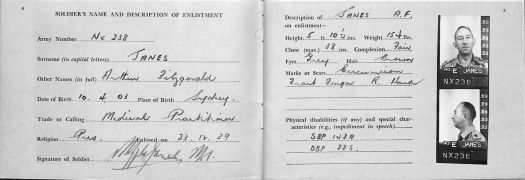 SOLDIER'S NAME AND DESCRIPTION OF ENLISTMENT
Army Number NX 238
Surname (in capital letters) JANES
Other Names (in full) Arthur Fitzgerald
Date of Birth 10. 4. 03 Place of Birth Sydney.
Trade or Calling Medical Practitioner
Religion Pres. Enlisted on 23. 12. 39
Signature of Soldier
Description of JANES A.F.
on enlistment:-
Height 5 ft. 10½ ins. Weight lbs.
Chest (max.) 38 ins. Complexion Fair
Eyes Grey Hair Brown
Marks or Scars
Finger R. Hand
Physical disabilities (if any) and special char-
acteristics (e.g., impediment in speech)
E JANES
NX238
E JANES
NX238